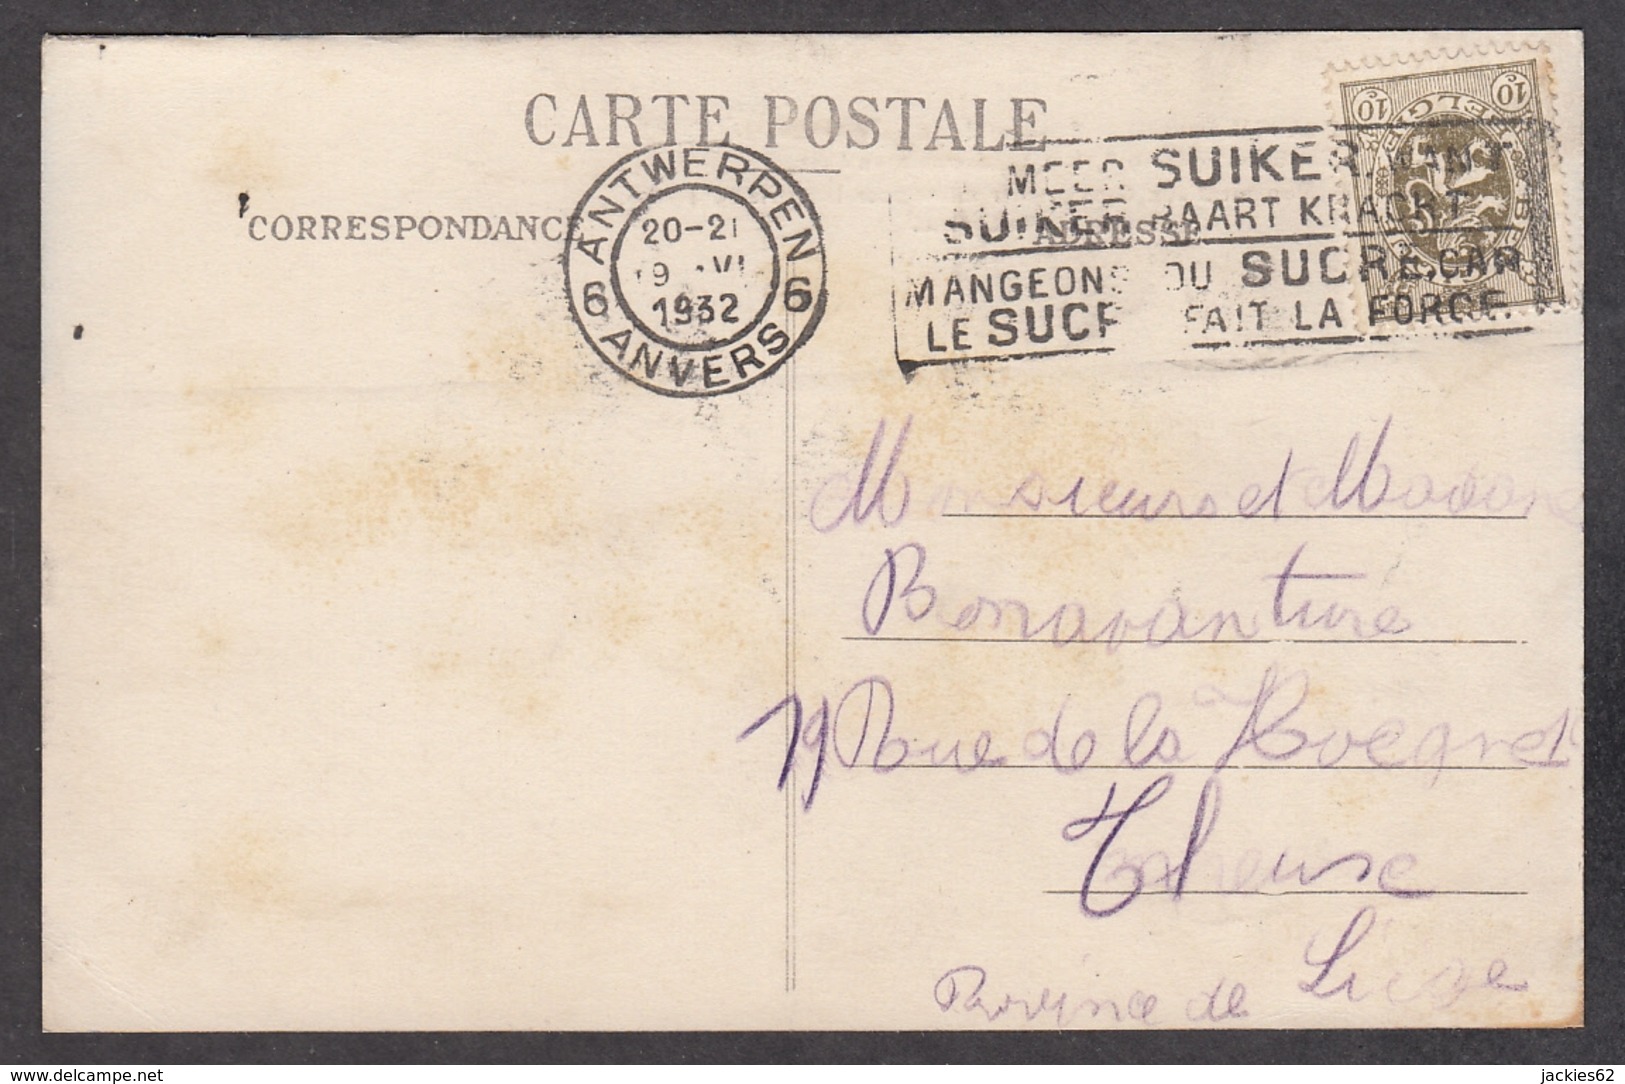 CARTE POSTALE
CORRESPONDANCE
ADRESSE
ANTWERPEN
20-21
9 VI
1932
6 6
ANVERS
MEER SUIKER, WANT
SUIKER BAART KRACHT
MANGEONS DU SUCRE, CAR
LE SUCR FAIT LA FORCE
10c 10c
Monsieurs et Madame
Bonavanture
79 Rue de la Hoegne
Theuse
Province de Liege
www.delcampe.net
jackies62